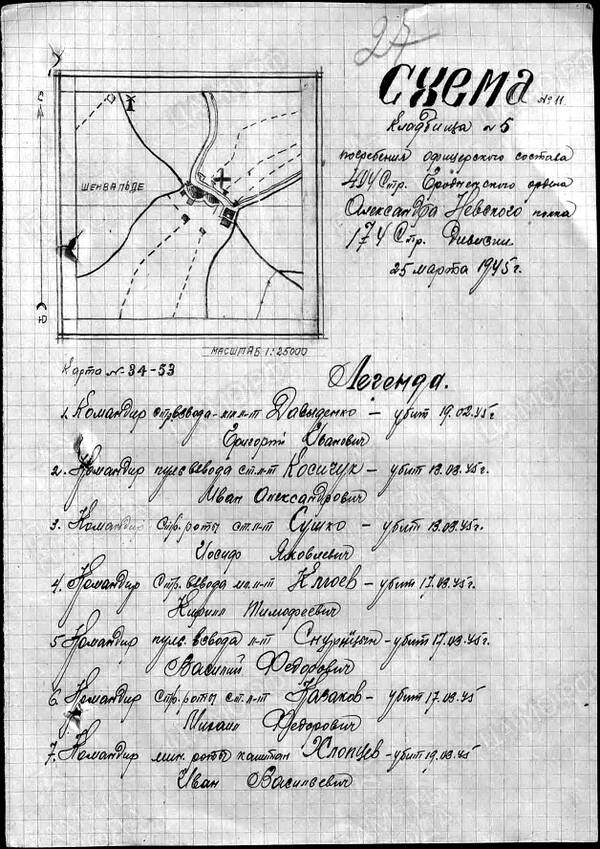 25
Схема № 11
Кладбища № 5
погребения офицерского состава
494 Стр. Гродненского ордена
Александра Невского полка
174 Стр. Дивизии
25 марта 1945 г.
С
ШЕНВАЛЬДЕ
Ю
МАСШТАБ 1:25000
Карта № 34-53
Легенда.
1. Командир стр. взвода - мл. л-т Давыденко - убит 19.02.45 г.
Григорий Иванович
2. Командир пул. взвода ст. л-т Косичук - убит 13.03.45 г.
Иван Александрович
3. Командир стр. роты ст. л-т Сушко - убит 13.03.45 г.
Иосиф Яковлевич
4. Командир стр. взвода мл. л-т Клюев - убит 17.03.45 г.
Кирилл Тимофеевич
5. Командир пул. взвода л-т - убит 17.03.45 г.
Василий Федорович
6. Командир стр. роты ст. л-т Казаков - убит 17.03.45
Михаил Федорович
7. Командир мин. роты капитан Хлопцев - убит 19.03.45
Иван Васильевич